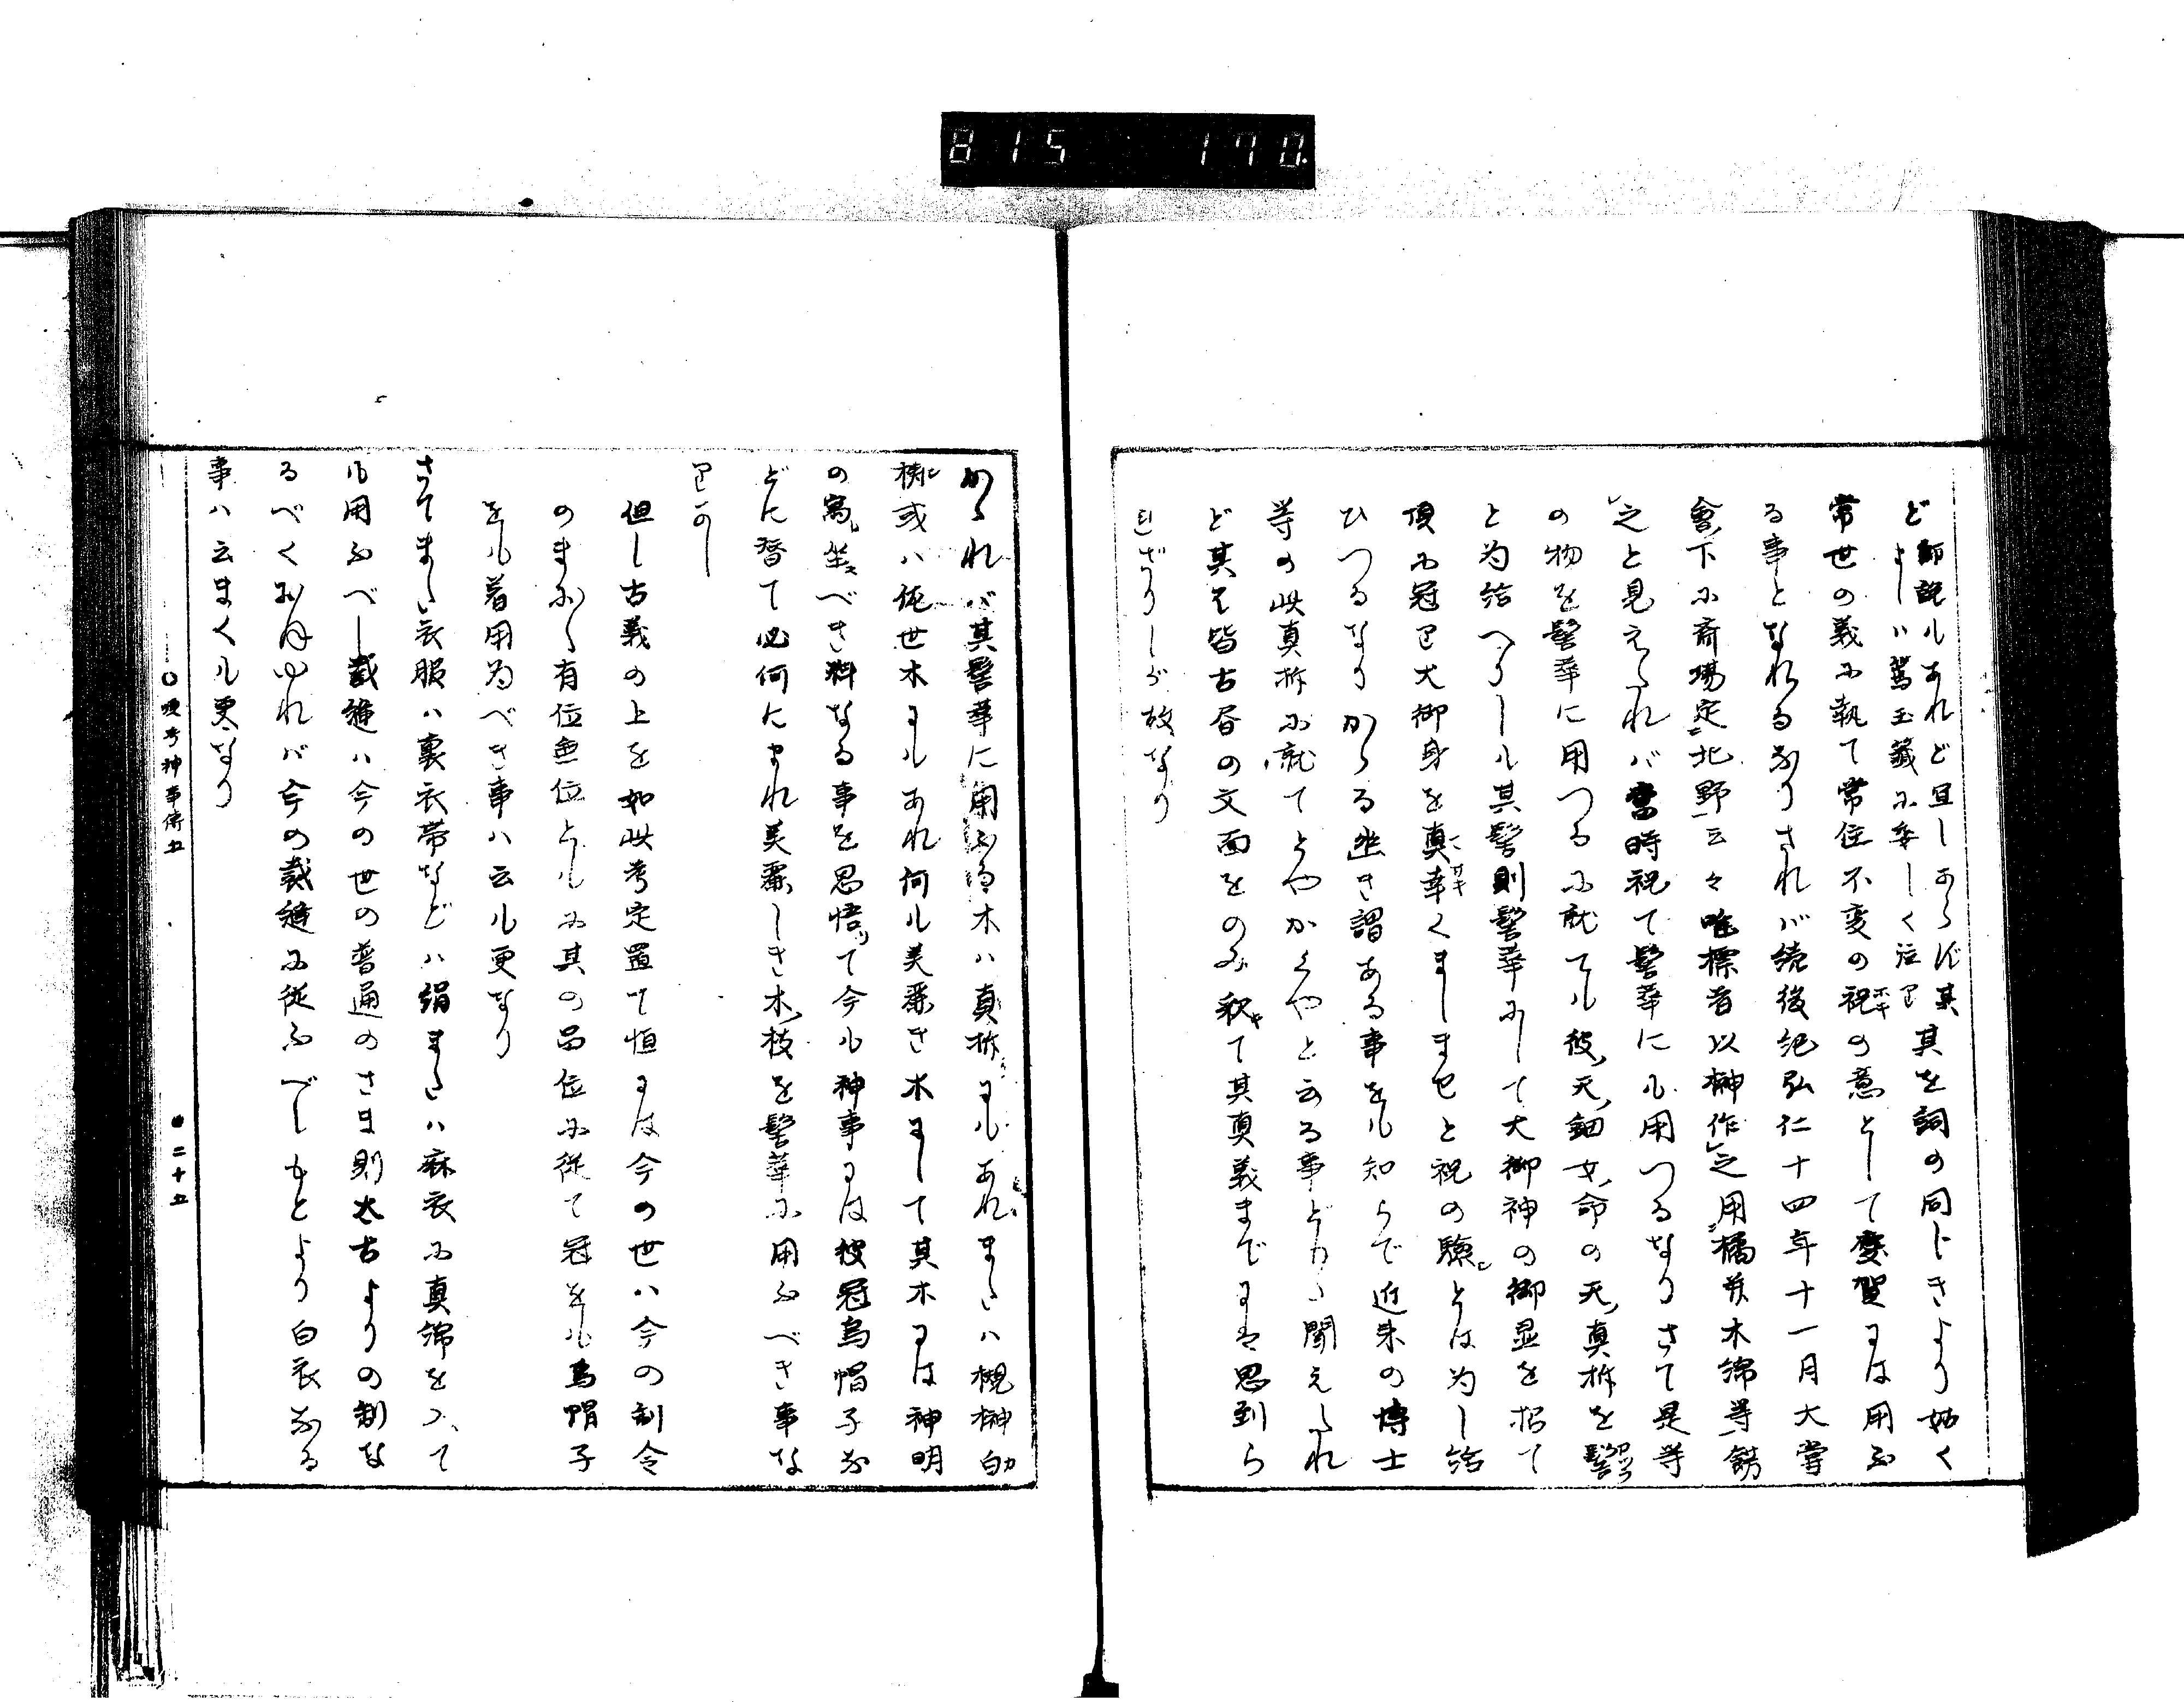 815 170.
ど師説もあれど宜しあらず其
よしハ篤玉籤に委しく注り
其を詞の同じきより始く
常世の義に執て常住不変の祝の意として慶賀には用ふ
る事となれるなりされバ続後紀弘仁十四年十一月大嘗
會下に斎場定北野云々唯標者以榊作之用橘并木綿等餝
之と見えたれバ當時祝て髻華にも用つるなりさて是等
の物を髻華に用つるに就ても彼天鈿女命の天真拆を鬘
と為給へりしも其髻則髻華にして大御神の御霊を招て
頂に冠り大御身を真幸くましませと祝の驗とは為し給
ひつるなりかゝる幽き謂ある事をも知らで近来の博士
等の此真拆に就てとやかくやと云る事ども聞えたれ
ど其は皆古昔の文面をのみ釈て其真義までには思到ら
ざりしが故なり
かゝれバ其髻華に用ふる木ハ真拆にもあれまたハ槻榊白
橿或ハ他世木にもあれ何も美麗き木にして其木には神明
の寓坐べき料なる事を思悟て今も神事には彼冠烏帽子な
どに替て必何にまれ美麗しき木枝を髻華に用ふべき事な
りかし
但し古義の上を如此考定置て恒には今の世ハ今の制令
のまに〱有位無位ともに其の品位に従て冠をも烏帽子
をも着用為べき事ハ云も更なり
さてまた衣服ハ裏衣帯などハ絹またハ麻衣に真綿を入て
も用ふべし裁縫ハ今の世の普通のさま則太古よりの制な
るべくおぼゆれバ今の裁縫に従ふべしもとより白衣なる
事ハ云まくも更なり
二十五